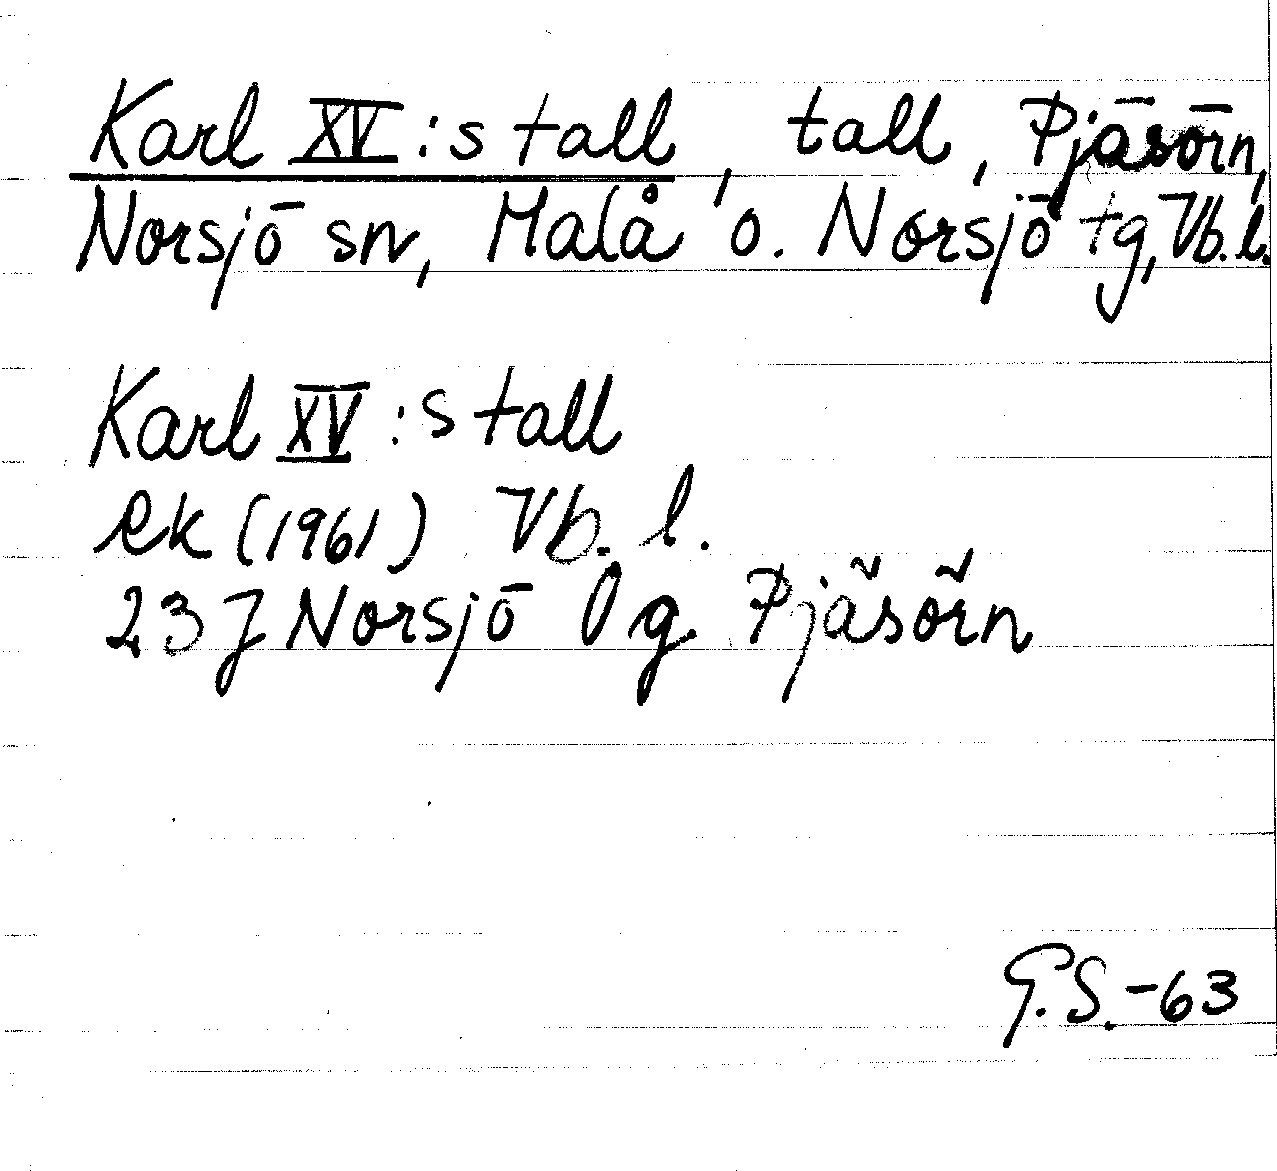 Karl XV:s tall, tall, Pjäsörn,
Norsjö sn, Malå o. Norsjö tg, Vb. l.
Karl XV:s tall
ek (1961) Vb. l.
23J Norsjö lg. Pjäsörn
G.S.-63